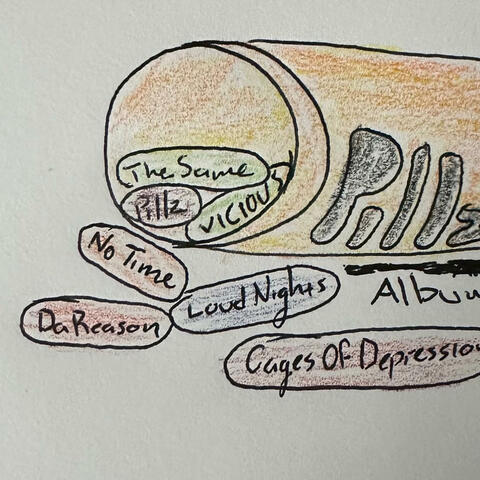 The Same
Pillz
VICIOUS
Pills
No Time
Loud Nights
Album
Da Reason
Cages Of Depression